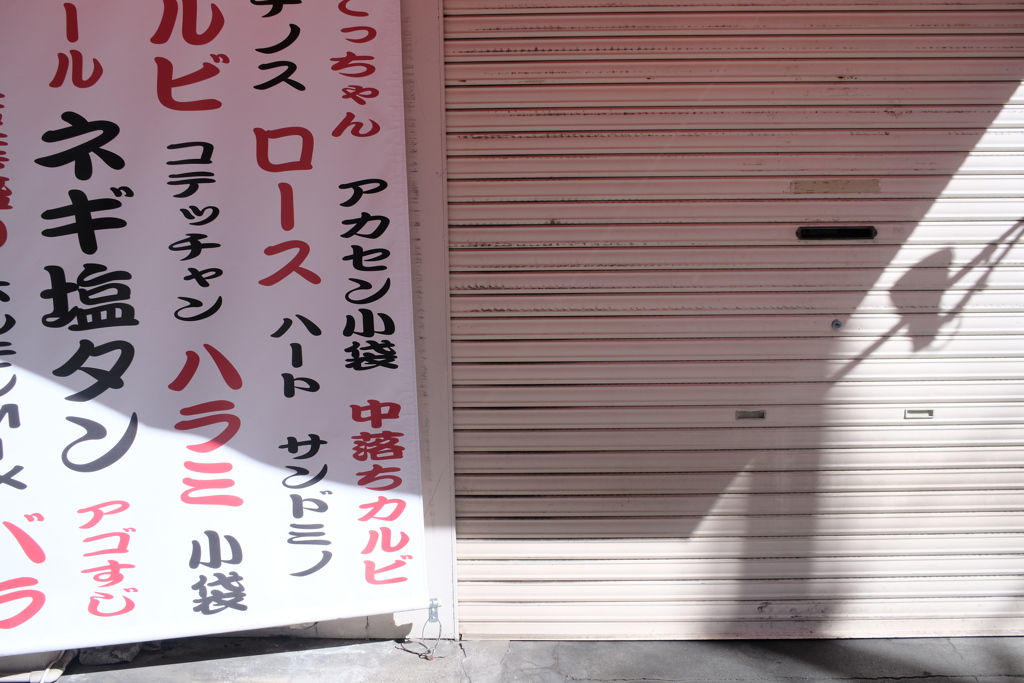 てっちゃん アカセン小袋 中落ちカルビ
チノス ロース ハート サンドミノ
ルビ コテッチャン ハラミ 小袋
ール ネギ塩タン アゴすじ
ホルモンMIX バラ